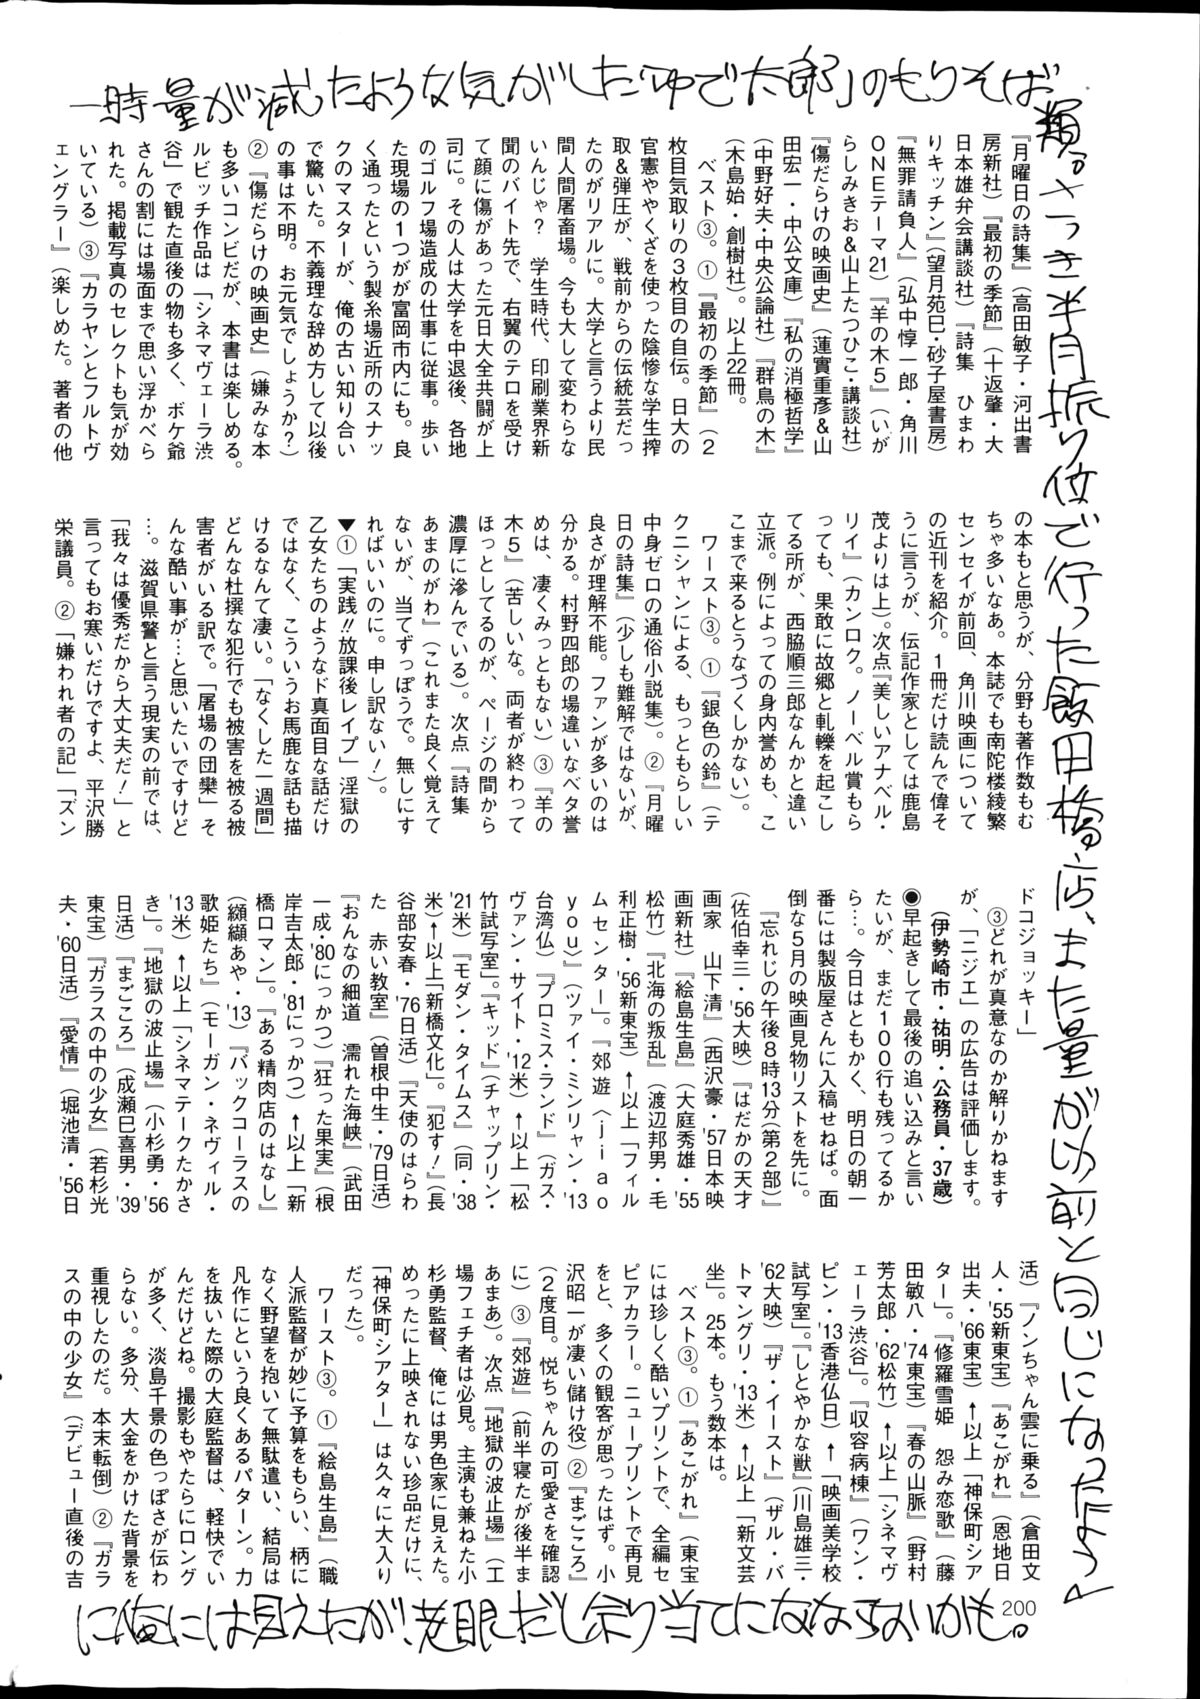 一時量が減したような気がした「ゆで太郎」のもりそば
『月曜日の詩集』（高田敏子・河出書
房新社）『最初の季節』（十返肇・大
日本雄弁会講談社）『詩集　ひまわ
りキッチン』（望月苑巳・砂子屋書房）
『無罪請負人』（弘中惇一郎・角川
ＯＮＥテーマ21）『羊の木５』（いが
らしみきお＆山上たつひこ・講談社）
『傷だらけの映画史』（蓮實重彦＆山
田宏一・中公文庫）『私の消極哲学』
（中野好夫・中央公論社）『群鳥の木』
（木島始・創樹社）。以上22冊。
　ベスト③。①『最初の季節』（２
枚目気取りの３枚目の自伝。日大の
官憲ややくざを使った陰惨な学生搾
取＆弾圧が、戦前からの伝統芸だっ
たのがリアルに。大学と言うより民
間人間屠畜場。今も大して変わらな
いんじゃ？　学生時代、印刷業界新
聞のバイト先で、右翼のテロを受け
て顔に傷があった元日大全共闘が上
司に。その人は大学を中退後、各地
のゴルフ場造成の仕事に従事。歩い
た現場の１つが富岡市内にも。良
く通ったという製糸場近所のスナッ
クのマスターが、俺の古い知り合い
で驚いた。不義理な辞め方して以後
の事は不明。お元気でしょうか？）
②『傷だらけの映画史』（嫌みな本
も多いコンビだが、本書は楽しめる。
ルビッチ作品は「シネマヴェーラ渋
谷」で観た直後の物も多く、ボケ爺
さんの割には場面まで思い浮かべら
れた。掲載写真のセレクトも気が効
いている）③『カラヤンとフルトヴ
ェングラー』（楽しめた。著者の他
の本もと思うが、分野も著作数もむ
ちゃ多いなあ。本誌でも南陀楼綾繁
センセイが前回、角川映画について
の近刊を紹介。１冊だけ読んで偉そ
うに言うが、伝記作家としては鹿島
茂よりは上）。次点『美しいアナベル・
リイ』（カンロク。ノーベル賞もら
っても、果敢に故郷と軋轢を起こし
てる所が、西脇順三郎なんかと違い
立派。例によっての身内誉めも、こ
こまで来るとうなづくしかない）。
　ワースト③。①『銀色の鈴』（テ
クニシャンによる、もっともらしい
中身ゼロの通俗小説集）。②『月曜
日の詩集』（少しも難解ではないが、
良さが理解不能。ファンが多いのは
分かる。村野四郎の場違いなベタ誉
めは、凄くみっともない）③『羊の
木５』（苦しいな。両者が終わって
ほっとしてるのが、ページの間から
濃厚に滲んでいる）。次点『詩集
あまのがわ』（これまた良く覚えて
ないが、当てずっぽうで。無しにす
ればいいのに。申し訳ない！）。
▼①「実践!!放課後レイプ」淫獄の
乙女たちのようなド真面目な話だけ
ではなく、こういうお馬鹿な話も描
けるなんて凄い。「なくした一週間」
どんな杜撰な犯行でも被害を被る被
害者がいる訳で。「屠場の団欒」そ
んな酷い事が…と思いたいですけど
…。滋賀県警と言う現実の前では、
「我々は優秀だから大丈夫だ！」と
言ってもお寒いだけですよ、平沢勝
栄議員。②「嫌われ者の記」「ズン
ドコジョッキー」
　③どれが真意なのか解りかねます
が、「ニジエ」の広告は評価します。
（伊勢崎市・祐明・公務員・37歳）
●早起きして最後の追い込みと言い
たいが、まだ１００行も残ってるか
ら…。今日はともかく、明日の朝一
番には製版屋さんに入稿せねば。面
倒な５月の映画見物リストを先に。
　『忘れじの午後８時13分（第２部）』
（佐伯幸三・'56大映）『はだかの天才
画家　山下清』（西沢豪・'57日本映
画新社）『絵島生島』（大庭秀雄・'55
松竹）『北海の叛乱』（渡辺邦男・毛
利正樹・'56新東宝）↑以上「フィル
ムセンター」。『郊遊〈ｊｉａｏ
ｙｏｕ〉』（ツァイ・ミンリャン・'13
台湾仏）『プロミス・ランド』（ガス・
ヴァン・サイト・'12米）↑以上「松
竹試写室」。『キッド』（チャップリン・
'21米）『モダン・タイムス』（同・'38
米）↑以上「新橋文化」。『犯す！』（長
谷部安春・'76日活）『天使のはらわ
た　赤い教室』（曽根中生・'79日活）
『おんなの細道　濡れた海峡』（武田
一成・'80にっかつ）『狂った果実』（根
岸吉太郎・'81にっかつ）↑以上「新
橋ロマン」。『ある精肉店のはなし』
（纐纈あや・'13）『バックコーラスの
歌姫たち』（モーガン・ネヴィル・
'13米）↑以上「シネマテークたかさ
き」。『地獄の波止場』（小杉勇・'56
日活）『まごころ』（成瀬巳喜男・'39
東宝）『ガラスの中の少女』（若杉光
夫・'60日活）『愛情』（堀池清・'56日
活）『ノンちゃん雲に乗る』（倉田文
人・'55新東宝）『あこがれ』（恩地日
出夫・'66東宝）↑以上「神保町シア
ター」。『修羅雪姫　怨み恋歌』（藤
田敏八・'74東宝）『春の山脈』（野村
芳太郎・'62松竹）↑以上「シネマヴ
ェーラ渋谷」。『収容病棟』（ワン・
ビン・'13香港仏日）↑「映画美学校
試写室」。『しとやかな獣』（川島雄三・
'62大映）『ザ・イースト』（ザル・バ
トマングリ・'13米）↑以上「新文芸
坐」。25本。もう数本は。
　ベスト③。①『あこがれ』（東宝
には珍しく酷いプリントで、全編セ
ピアカラー。ニュープリントで再見
をと、多くの観客が思ったはず。小
沢昭一が凄い儲け役）②『まごころ』
（２度目。悦ちゃんの可愛さを確認
に）③『郊遊』（前半寝たが後半ま
あまあ）。次点『地獄の波止場』（工
場フェチ者は必見。主演も兼ねた小
杉勇監督、俺には男色家に見えた。
めったに上映されない珍品だけに、
「神保町シアター」は久々に大入り
だった）。
　ワースト③。①『絵島生島』（職
人派監督が妙に予算をもらい、柄に
なく野望を抱いて無駄遣い、結局は
凡作にという良くあるパターン。力
を抜いた際の大庭監督は、軽快でい
んだけどね。撮影もやたらにロング
が多く、淡島千景の色っぽさが伝わ
らない。多分、大金をかけた背景を
重視したのだ。本末転倒）②『ガラ
スの中の少女』（デビュー直後の吉
さっき半月振り位で行った飯田橋店、また量が以前と同じになったよう
に俺には見えたが！老眼だし余り当てにならないかも。
200